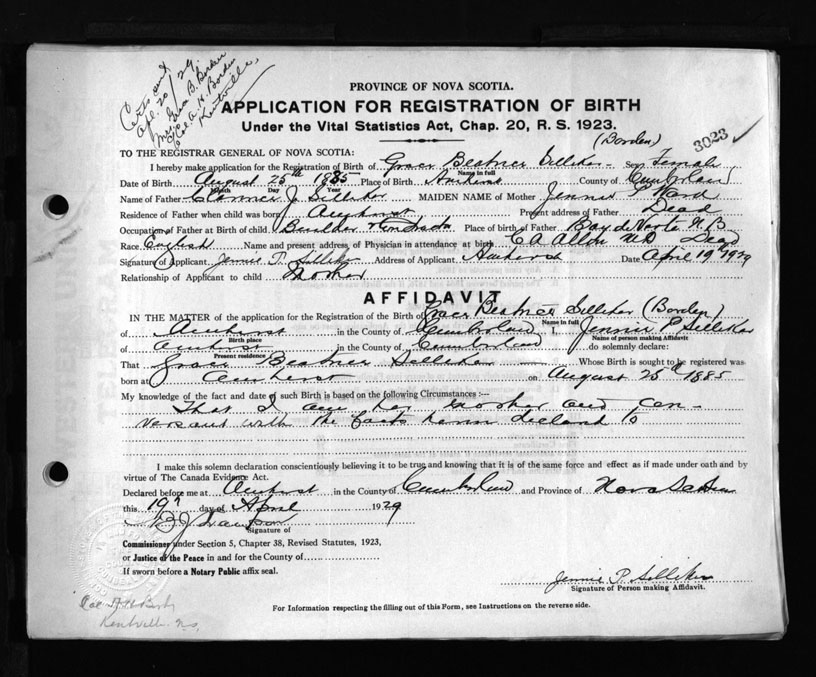 Certs sent
Apl. 20/29
Mrs. B. Borden
Col. A. H. Borden
Kentville
PROVINCE OF NOVA SCOTIA.
APPLICATION FOR REGISTRATION OF BIRTH
Under the Vital Statistics Act, Chap. 20, R. S. 1923.
(Borden) 3023
TO THE REGISTRAR GENERAL OF NOVA SCOTIA:
I hereby make application for the Registration of Birth of Grace Beatrice Silliker Sex Female
Name in full
Date of Birth August 25th 1885 Place of Birth Amherst County of Cumberland
Month Day Year
Name of Father Clarence J Silliker MAIDEN NAME of Mother Jennie P Ward
Residence of Father when child was born Amherst Present address of Father Dead
Occupation of Father at Birth of child Builder & Contractor Place of birth of Father Bay de Verte N.B
Race English Name and present address of Physician in attendance at birth C A Allen MD Dead
Signature of Applicant Jennie P. Silliker Address of Applicant Amherst Date April 19th 1929
Relationship of Applicant to child Mother
AFFIDAVIT
IN THE MATTER of the application for the Registration of the Birth of Grace Beatrice Silliker (Borden)
Name in full
of Amherst in the County of Cumberland I, Jennie P Silliker
Birth place Name of person making Affidavit
of Amherst in the County of Cumberland do solemnly declare:
Present residence
That Grace Beatrice Silliker Whose Birth is sought to be registered was
born at Amherst on August 25th 1885
My knowledge of the fact and date of such Birth is based on the following Circumstances :—
That I am her mother and con-
versant with the facts herein declared to
I make this solemn declaration conscientiously believing it to be true and knowing that it is of the same force and effect as if made under oath and by
virtue of The Canada Evidence Act.
Declared before me at Amherst in the County of Cumberland and Province of Nova Scotia
this 19th day of April 1929
Signature of
Commissioner under Section 5, Chapter 38, Revised Statutes, 1923,
or Justice of the Peace in and for the County of
If sworn before a Notary Public affix seal.
Jennie P. Silliker
Signature of Person making Affidavit.
Kentville N.S.
For Information respecting the filling out of this Form, see Instructions on the reverse side.